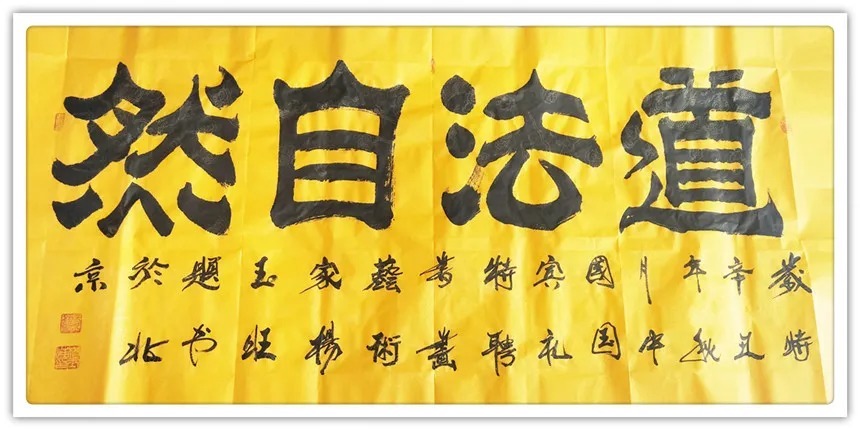 道法自然
歲時
辛丑
年秋
月中
國国
宾礼
特聘
書畫
藝術
家楊
玉旺
題书
於北
京